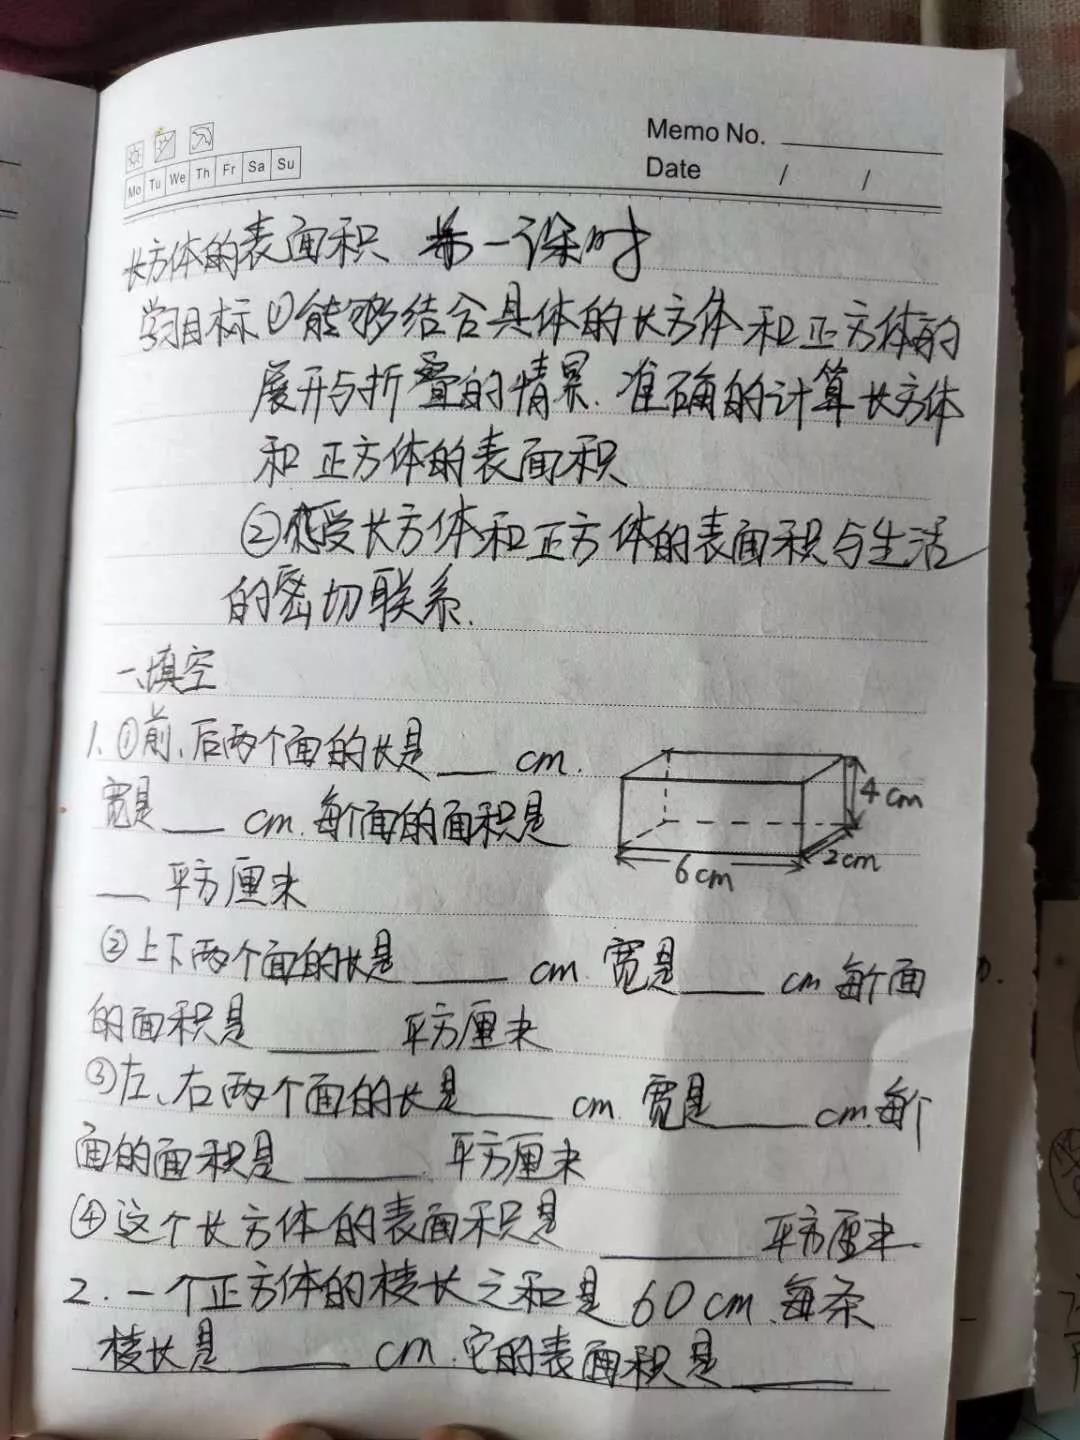 Memo No.
Mo Tu We Th Fr Sa Su
Date / /
长方体的表面积 第一课时
学习目标①能够结合具体的长方体和正方体的
展开与折叠的情景.准确的计算长方体
和正方体的表面积
②感受长方体和正方体的表面积与生活
的密切联系.
一、填空
1.①前、后两个面的长是___ cm.
宽是___ cm.每个面的面积是
___ 平方厘米
4cm
2cm
6cm
②上下两个面的长是____ cm.宽是____ cm 每个面
的面积是____ 平方厘米
③左、右两个面的长是____ cm.宽是____ cm.每个
面的面积是____ 平方厘米
④这个长方体的表面积是____ 平方厘米.
2.一个正方体的棱长之和是60cm.每条
棱长是____ cm.它的表面积是____